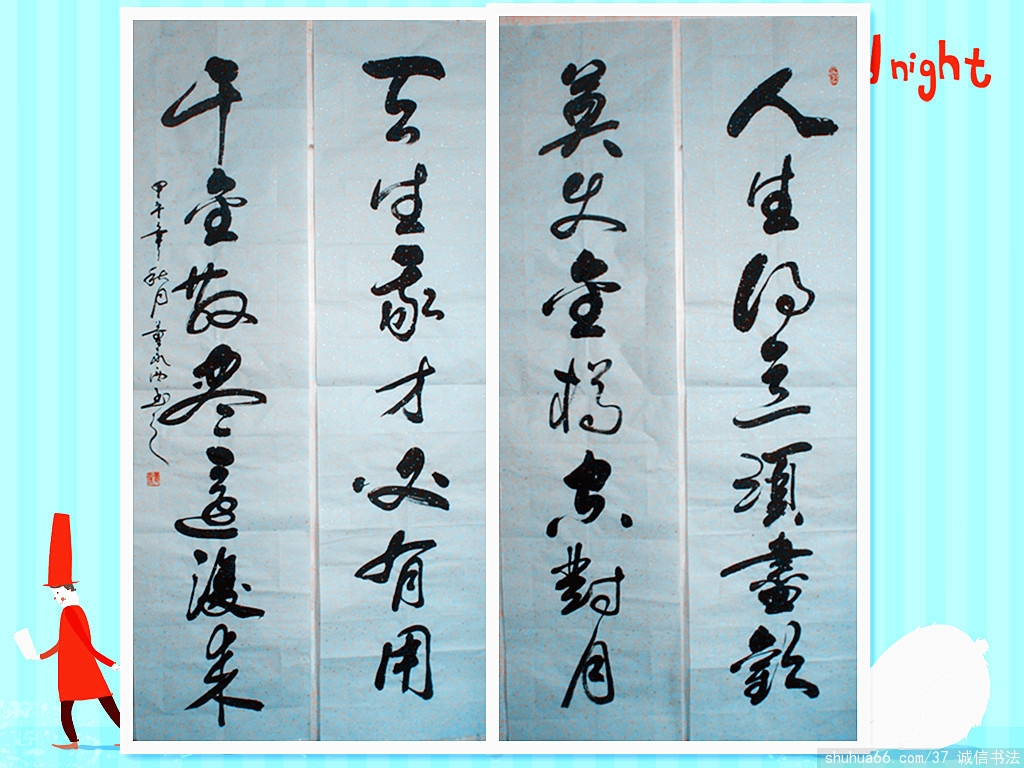 人生得意須盡歡
莫使金樽空對月
天生我才必有用
千金散盡還復来
甲午年秋月董
night
shuhua66.com/37 诚信书法